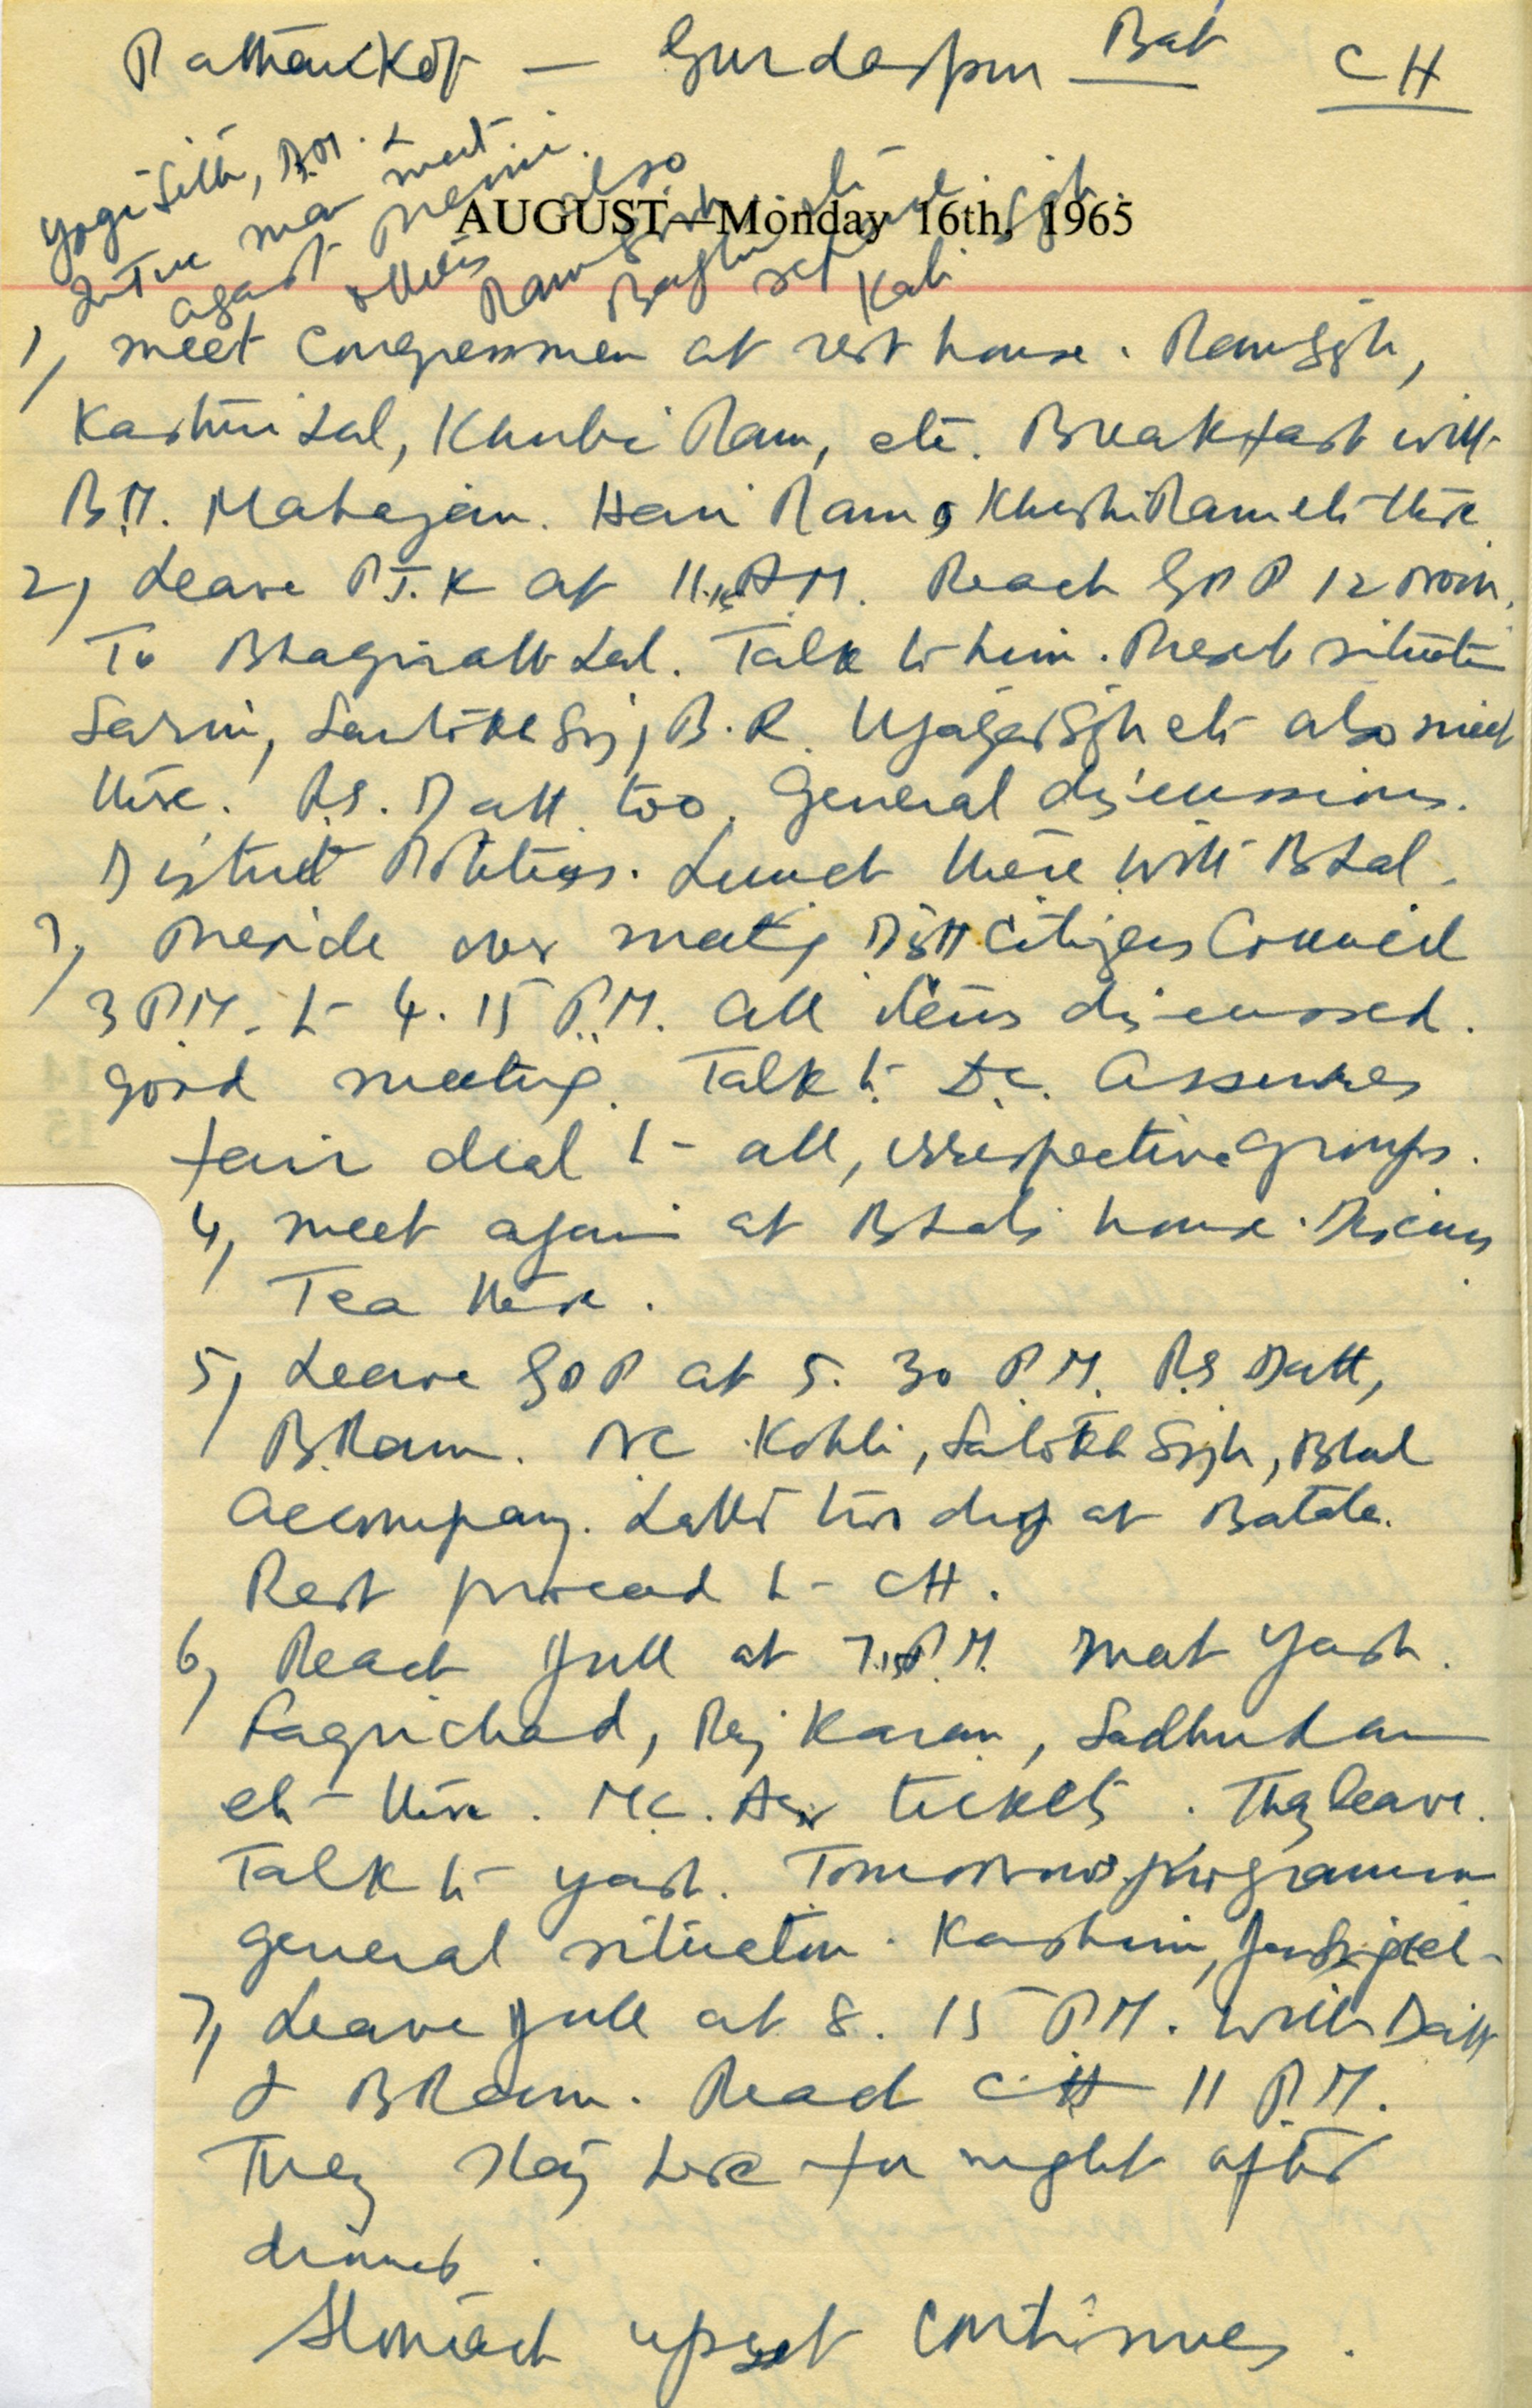 Pathankot — Gurdaspur Bat CH
AUGUST—Monday 16th, 1965
also
1, meet Congressmen at rest house. Ram Sgh,
Kashmi Lal, Khubi Ram, etc. Breakfast with
B.D. Mahajan. Hari Ram, Khushi Ram etc there
2, Leave P.T.K at 11.15 A.M. Reach GDP 12 noon.
To Bhagirath Lal. Talk to him. Present situation
Santokh Sgh, B.R. Ujagar Sgh etc also meet
there. R.S. Datt too. General discussions.
District Politics. Lunch there with BLal.
3, Preside over meetg Distt Citizens Council
3 P.M. to 4.15 P.M. All items discussed.
Good meeting. Talk to D.C. Assures
fair deal to all, irrespective groups.
4, meet again at BLal's house. Discuss
Tea there.
5, Leave GDP at 5.30 P.M. R.S Datt,
BRam. NC Kohli, Santokh Sgh, BLal
accompany. Latter two drop at Batala.
Rest proceed to CH.
6, Reach Jull at 7.15 P.M. meet Yash.
Faqirchand, Raj Karan, Sadhu Ram
etc there. M.C. Asr tickets. They leave.
Talk to Yash. Tomorrows programme
general situation. Kashmir,
7, Leave Jull at 8.15 P.M. with Datt
& BRam. Reach CH 11 P.M.
They stay here for night after
dinner.
Stomach upset continues.